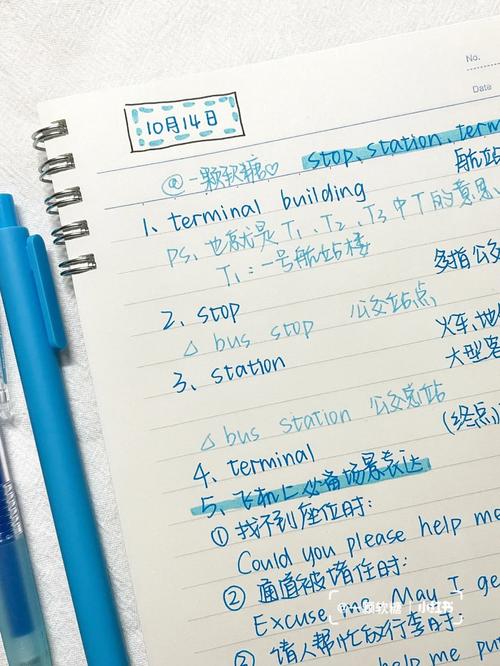 No.
Date
10月14日
@一颗软糖♡ stop、station、term
1、terminal building 航站
PS、也就是T1、T2、T3中T的意思
T1:一号航站楼
2、stop 多指公交
△ bus stop 公交站点
3、station 火车、地
大型客
△ bus station 公交总站
4、terminal (终点)
5、飞机上必备场景表达
① 找不到座位时:
Could you please help me
② 通道被堵住时:
Excuse me, May I ge
③ 请人帮忙放行李时:
help me pu
@一颗软糖 小红书